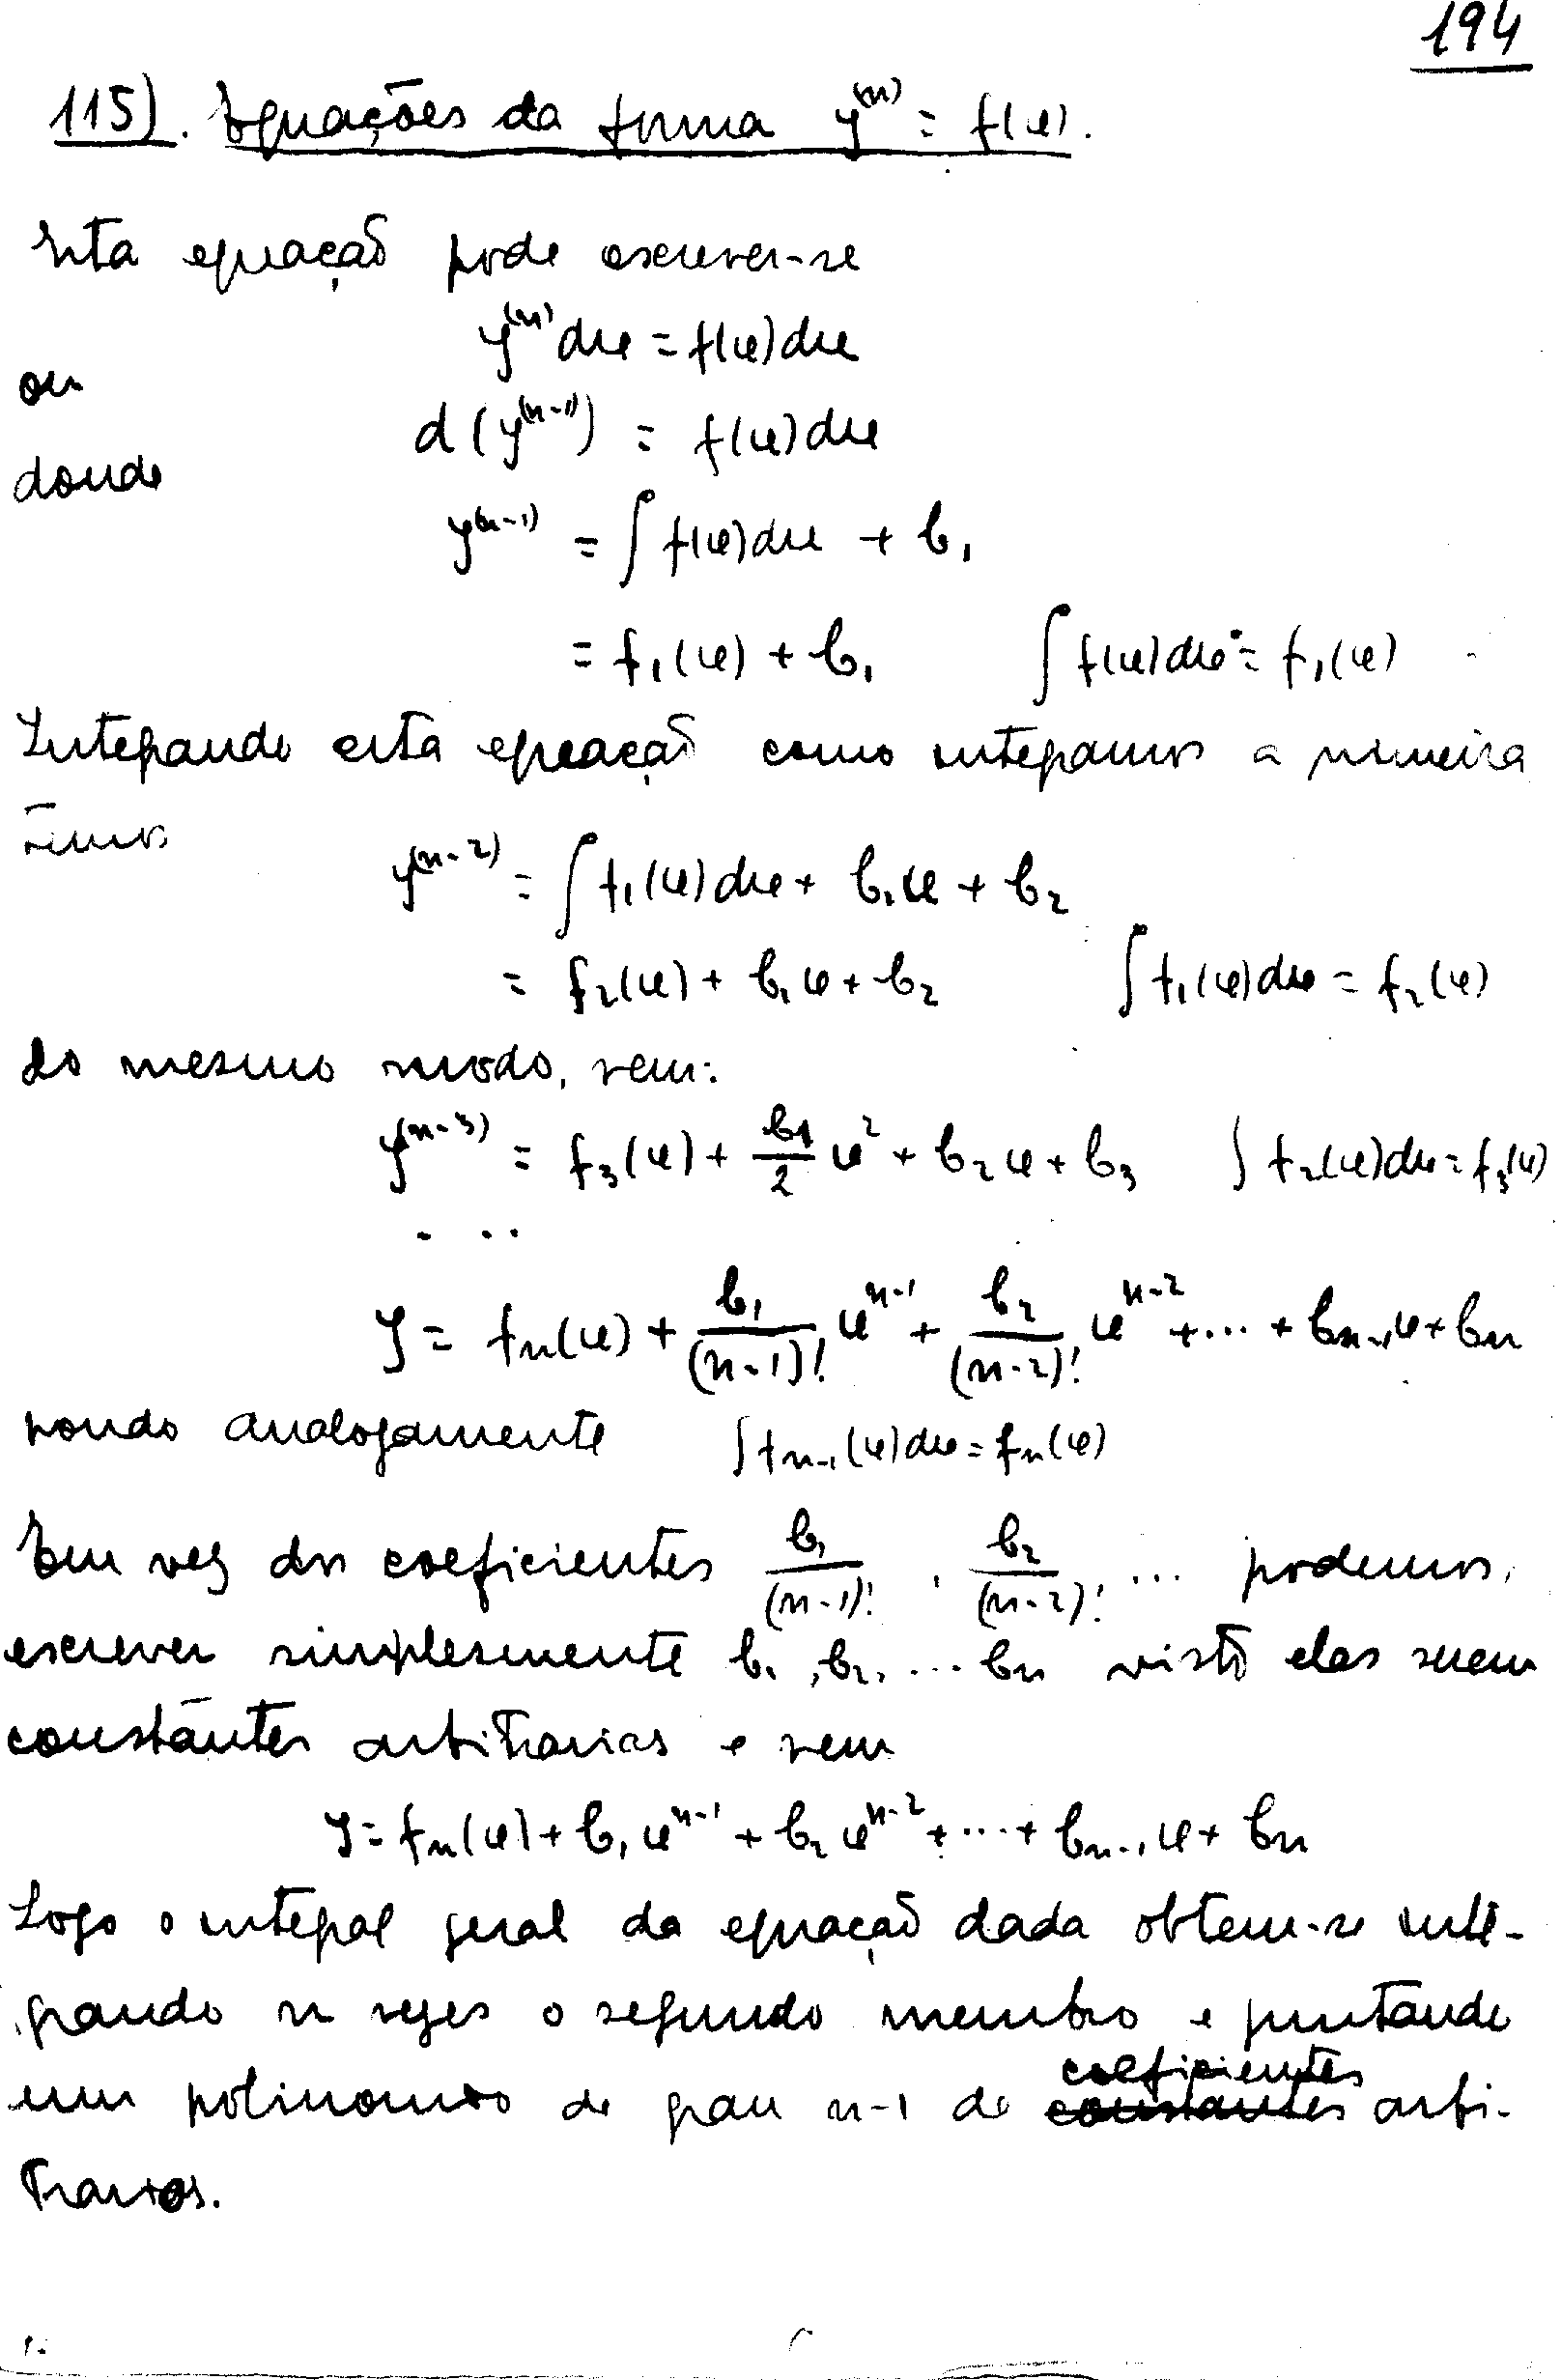 194
115). Equações da forma y⁽ⁿ⁾ = f(x).
Esta equação pode escrever-se
y⁽ⁿ⁾dx = f(x)dx
ou
d(y⁽ⁿ⁻¹⁾) = f(x)dx
donde
y⁽ⁿ⁻¹⁾ = ∫ f(x)dx + b₁
= f₁(x) + b₁ ∫ f(x)dx = f₁(x)
Integrando esta equação como integramos a primeira
temos
y⁽ⁿ⁻²⁾ = ∫ f₁(x)dx + b₁x + b₂
= f₂(x) + b₁x + b₂ ∫ f₁(x)dx = f₂(x)
do mesmo modo, vem:
y⁽ⁿ⁻³⁾ = f₃(x) + b₁/2 x² + b₂x + b₃ ∫ f₂(x)dx = f₃(x)
. . .
y = fₙ(x) + b₁/(n-1)! xⁿ⁻¹ + b₂/(n-2)! xⁿ⁻² + ... + bₙ₋₁x + bₙ
pondo analogamente ∫fₙ₋₁(x)dx = fₙ(x)
Em vez dos coeficientes b₁/(n-1)! , b₂/(n-2)! , ... podemos,
escrever simplesmente b₁, b₂, ... bₙ visto elas serem
constantes arbitrarias e vem
y = fₙ(x) + b₁xⁿ⁻¹ + b₂xⁿ⁻² + ... + bₙ₋₁x + bₙ
Logo o integral geral da equação dada obtem-se inte-
grando n vezes o segundo membro e juntando
coeficientes
um polinomio de grau n-1 de constantes arbi-
trarios.